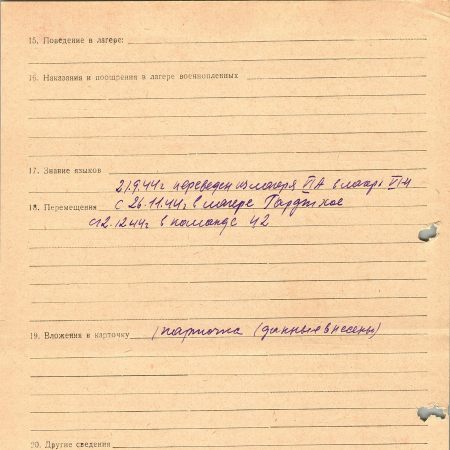 15. Поведение в лагере:
16. Наказания и поощрения в лагере военнопленных
17. Знание языков
21.9.44г переведен из лагеря VIA в лагерь VIH
18. Перемещения с 26.11.44г в лагере
с 12.12.44г в команде 42
19. Вложения в карточку 1 карточка (данные внесены)
20. Другие сведения